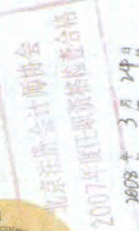 北京注册会计师协会
2007年度任职资格检查合格
2008年 3月 24日